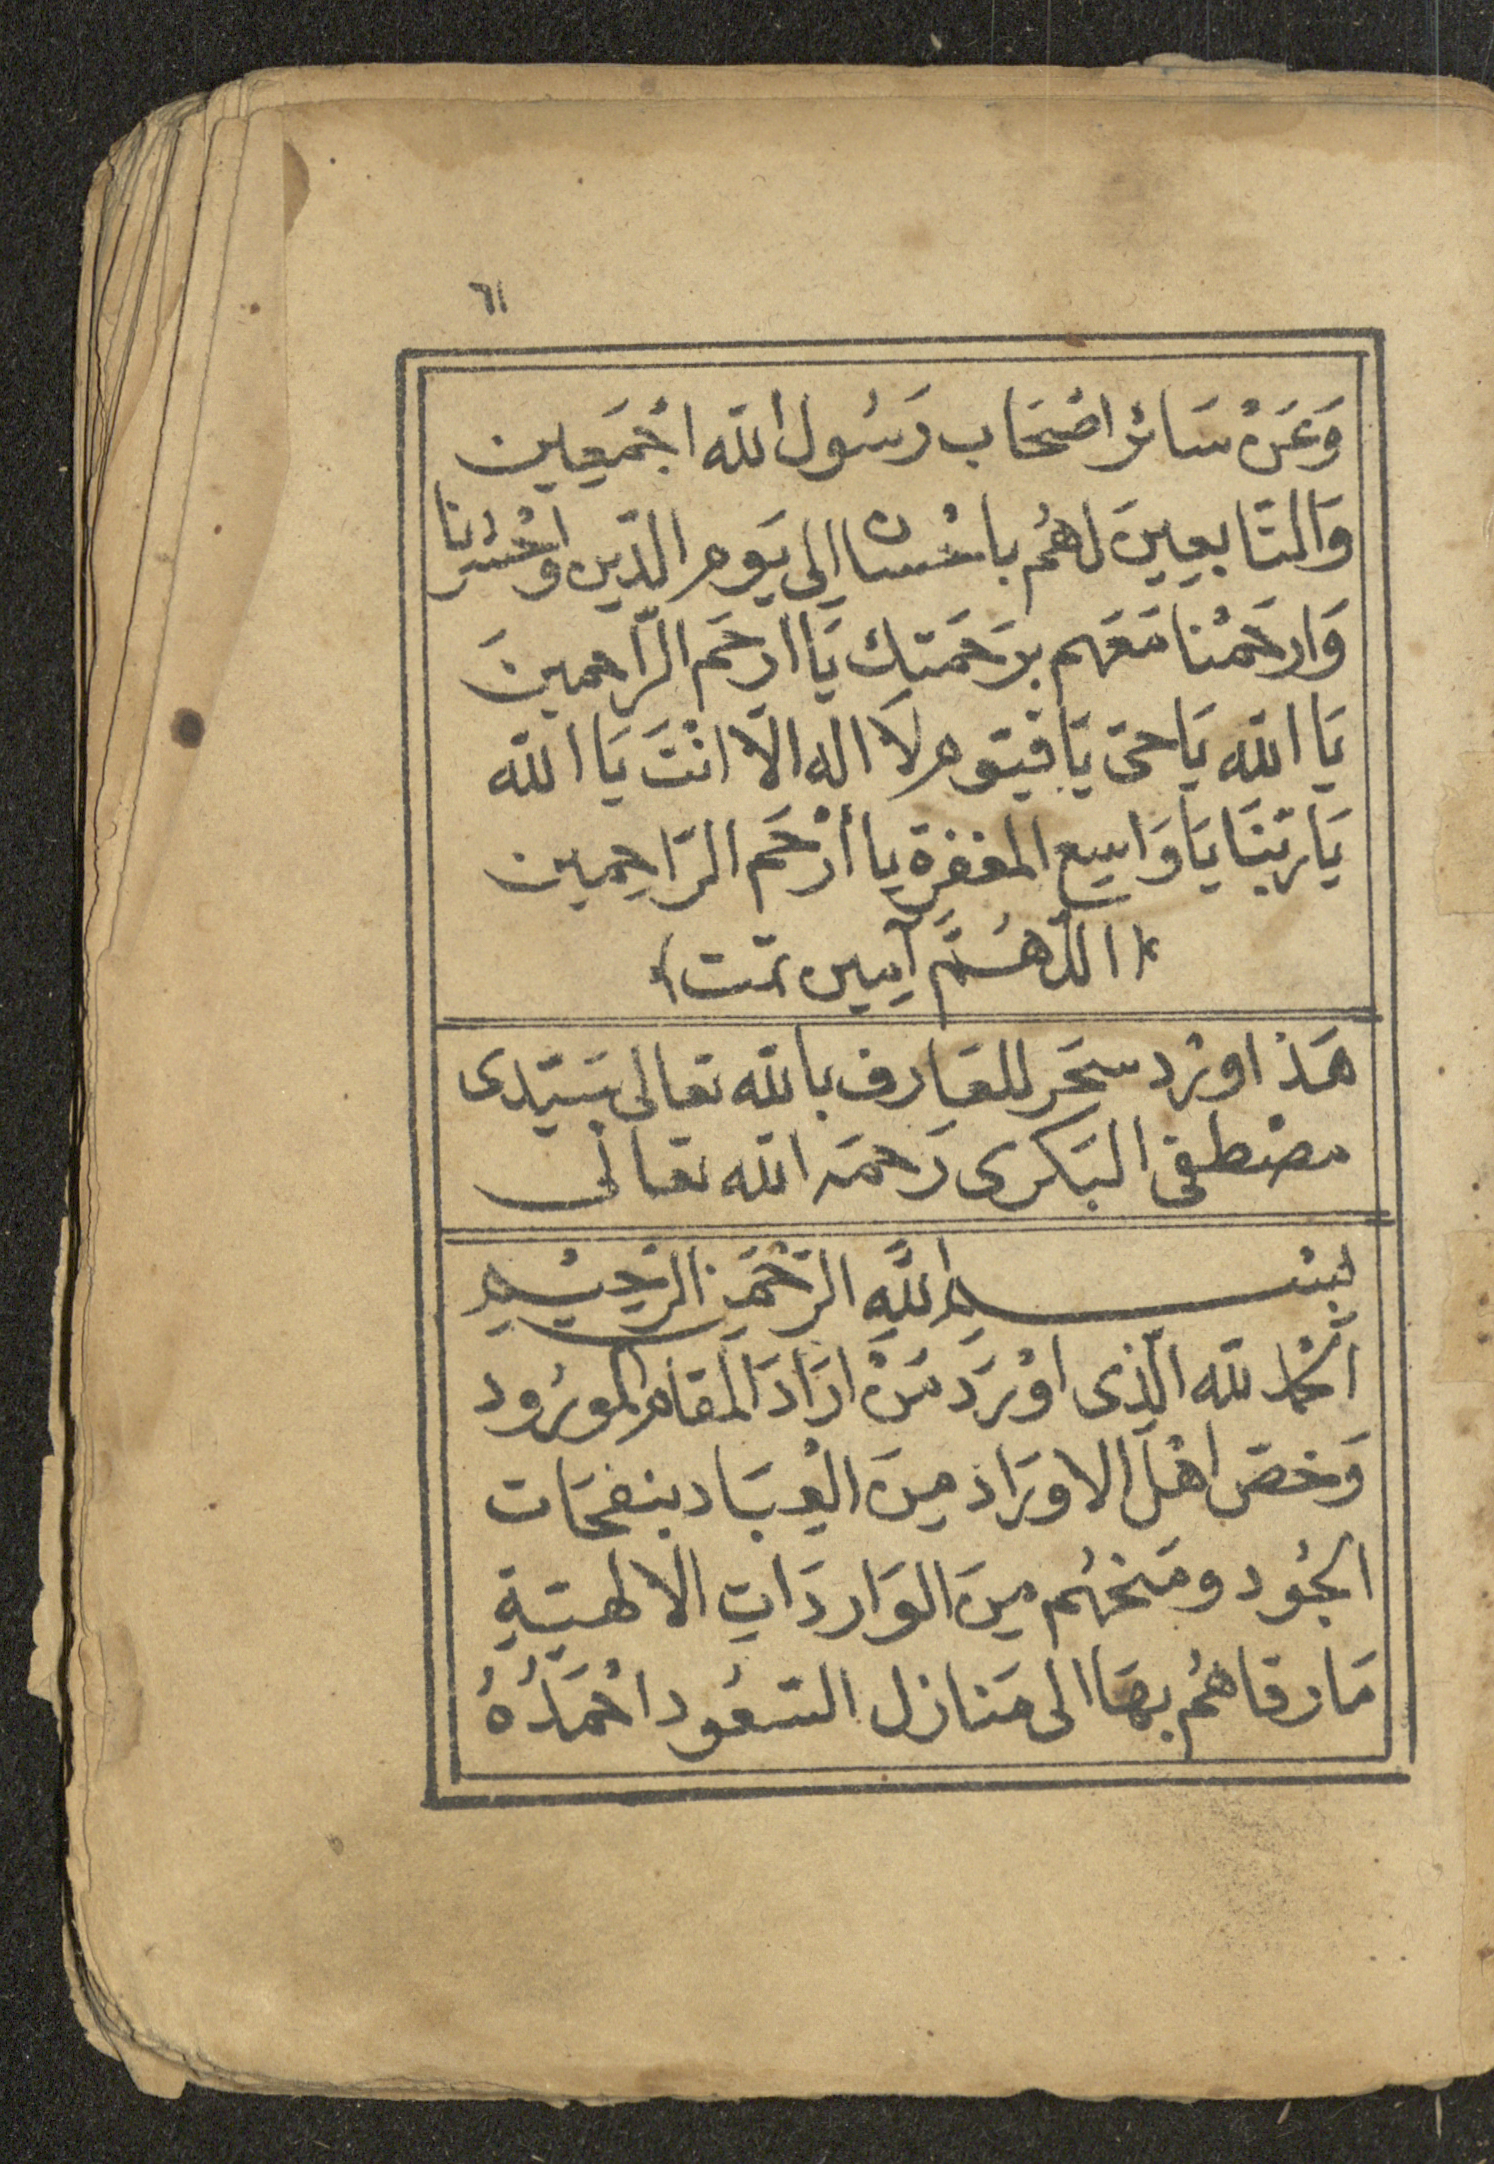 ٦١
وَعَنْ سَائر اصْحَاب رَسُول الله اجْمَعِين
وَالتَّابعِينَ لهُم باحْسان الى يَوم الدّين واحْشرنا
وَارحَمْنا مَعَهم برَحمَتك يَا ارحَم الرّاحمينَ
يَا الله يَاحىّ يَاقيّوم لَا اله الّا انْتَ يَا الله
يَاربّنَا يَاوَاسِع المغفرة يا أرْحَم الرَّاحِمين
﴿اللّهُمَّ آمِين تمّت﴾
هَذا ورْد سحَر للعَارف بالله تعالى سَيّدى
مصْطفى البَكرى رَحمَه الله تعالى
بِسْمِ اللَّهِ الرَّحْمَنِ الرَّحِيْمِ
الْحَمْد لله الّذى اوْرَدَ مَنْ ارَادَ المقام المورُود
وَخصّ اهْلَ الاورَاد مِنَ الْعِبَاد بنفحَات
الجُود ومَنحَهُم مِنَ الوَاردَاتِ الالهيَّةِ
مَا رقاهُم بهَا الى مَنازل السّعُود احْمَدُهُ